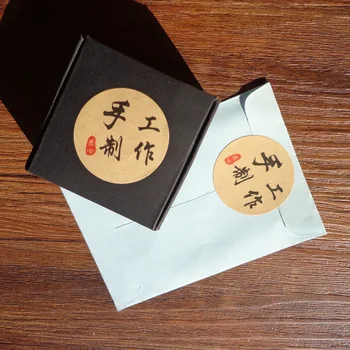 手工
制作
手工
制作